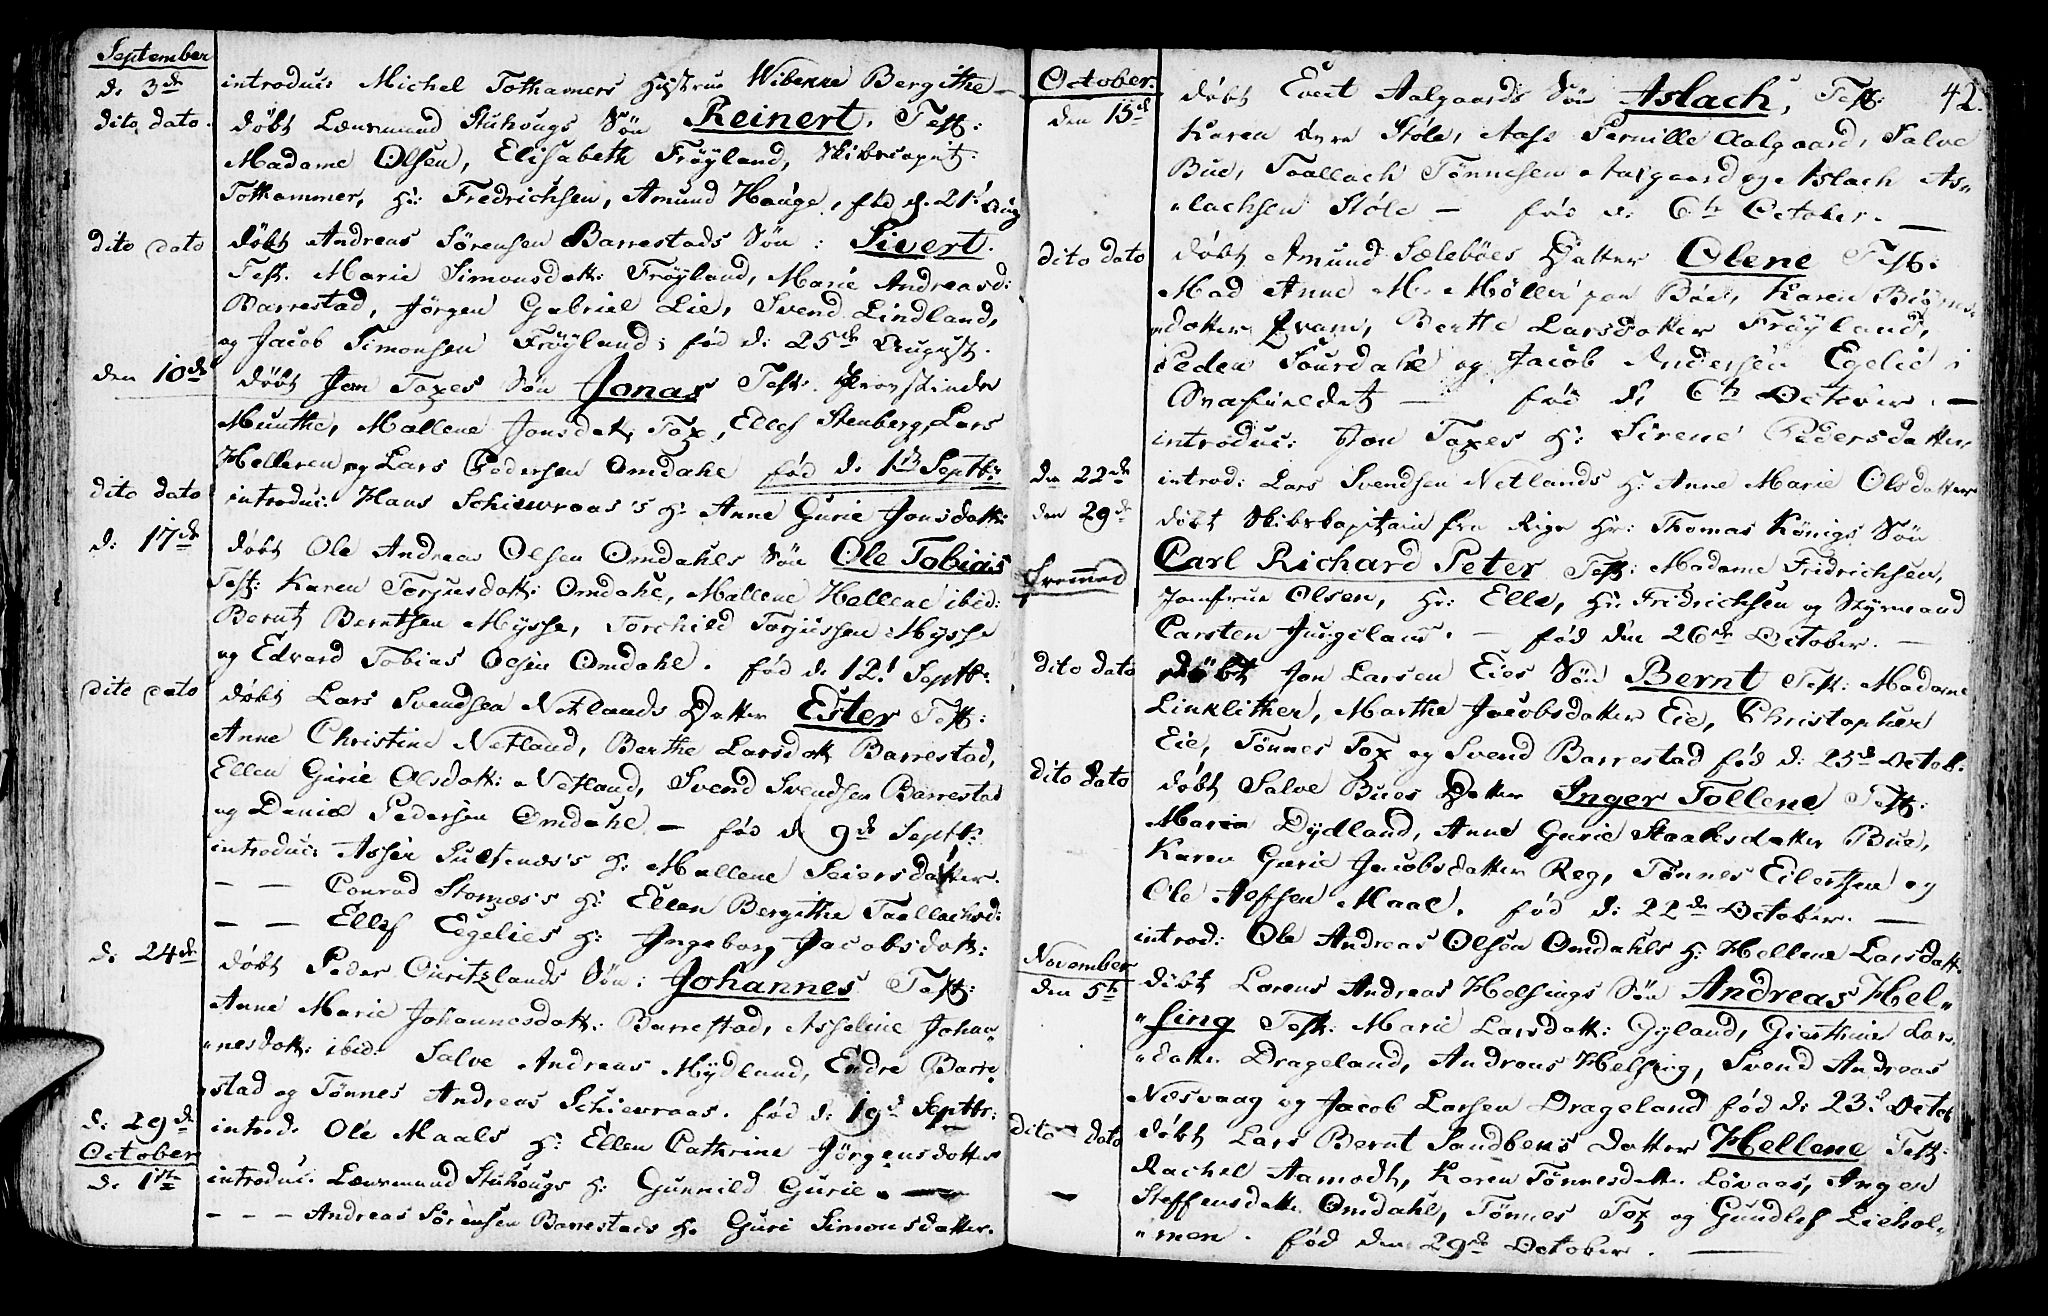 September
d: 3de introduc: Michel Tothamers Hustrue Wibekke Bergithe
dito dato. døbt Lænsmand Stuhougs Søn Reinert. Test:
Madame Olsen, Elisabeth Frøyland, Skibscapit:
Tothammer, Hr: Fredrichsen, Amund Houge, fød d. 21' Aug
dito dato døbt Andreas Sørensen Barrestads Søn: Sivert.
Test. Marie Simonsdatt: Frøyland, Marie Andreasd:
Barrestad, Jørgen Gabriel Lie, Svend Lindland,
og Jacob Simonsen Frøyland; fød d: 25de August.
den 10de døbt Jon Toxes Søn Jonas Test.
Munthe, Mallene Jonsdatt: Tox, Ellef Stenberg, Lars
Helleren og Lars Pedersen Omdahl fød d: 1ste Septb:
dito dato introduc: Hans Schiewraas's H: Anne Gurie Jonsdatt:
d: 17de døbt Ole Andreas Olsen Omdahls Søn Ole Tobias
Test: Karen Torjusdatt: Omdahl, Mallene Hellene ibid:
Bernt Berntsen Mysse, Torchild Torjussen Mysse
og Edvard Tobias Olsen Omdahl. fød d: 12' Septb:
dito dato døbt Lars Svendsen Netlands Datter Ester Test:
Anne Christine Netland, Berthe Larsdatt Barrestad,
Ellen Gurie Olsdatt: Netland, Svend Svendsen Barrestad
og Daniel Pedersen Omdahl — fød d 9de Septb:
introduc: Asser Sustenæs's H: Mallene Seiersdatter.
— — Conrad Stornæs's H: Ellen Bergithe Taallachsd:
— — Ellef Eegelies H: Ingeborg Jacobsdatt:
d: 24de døbt Peder Quitzlands Søn: Johannes Test:
Anne Marie Johannesdatt: Barrestad, Asseline Johan„
„nesdatt: ibid: Salve Andreas Mydland, Endre Barre„
stad og Tønnes Andreas Schiewraas. fød d: 19d Septbr:
d: 29de introd: Ole Maals H: Ellen Cathrine Jörgensdatter
October
d: 1ste introduc. Lænsmand Stuhougs H: Gunnild Gurie. —
— — — Andreas Sørensen Barrestads H: Guri Simonsdatter.
42.
October.
den 15de døbt Evert Aalgaards Søn Aslach, Test:
Karen Støle, Aase Pernille Aalgaard, Salve
Bue, Taallach Tønnesen Aalgaard og Aslach As„
„lachsen Støle — fød d: 6te October. —
dito dato døbt Amund Sælebøes Datter Olene Test:
Mad Anne M. Møller paa Bøe, Karen Biørns„
„datter Qvam, Berthe Larsdatter Frøyland,
Peder Suurdahl og Jacob Andersen Egelie i
Qvafieldet — fød d: 6te October. —
introduc: Jon Toxes H: Sirene Pedersdatter
den 22de introd: Lars Svendsen Netlands H: Anne Marie Olsdatter
den 29de døbt Skibskapitain fra Riga Hr: Thomas Königs Søn
fremmed Carl Richard Peter Test: Madame Fridrichsen,
Jomfrue Olsen, Hr: Elle, Hr: Fridrichsen og Styrmand
Carsten Jungclaus. — fød den 26de October. —
dito dato døbt Jon Larsen Eies Søn Bernt Test: Madame
Linklither, Marthe Jacobsdatter Eie, Christopher
Eie, Tønnes Tox og Svend Barrestad fød d: 25de Octob.
dito dato døbt Salve Bues Datter Inger Tollene Test:
Maria Dydland, Anne Gurie Staaksdatter Bue,
Karen Gurie Jacobsdatter Reg, Tønnes Eilertsen og
Ole Alfsen Maal. fød d: 22de October. —
introd: Ole Andreas Olsen Omdahls H: Hellene Larsdatt:
November
den 5te døbt Lorens Andreas Helsings Søn Andreas Hel„
„sing Test: Marie Larsdatt: Gyland, Giesthine Lars
„datter Drageland, Andreas Helsing, Svend Andreas
Næsvaag og Jacob Larsen Drageland fød d: 23de Octob
dito — dato døbt Lars Bernt Sandbens Datter Hellene Test:
Rachel Aamodt, Karen Tønnesdatter Lovaas, Inger
— Steffensdatter Omdahl, Tønnes Tox og Gundlef Liehol„
„men. fød den 29de October. —